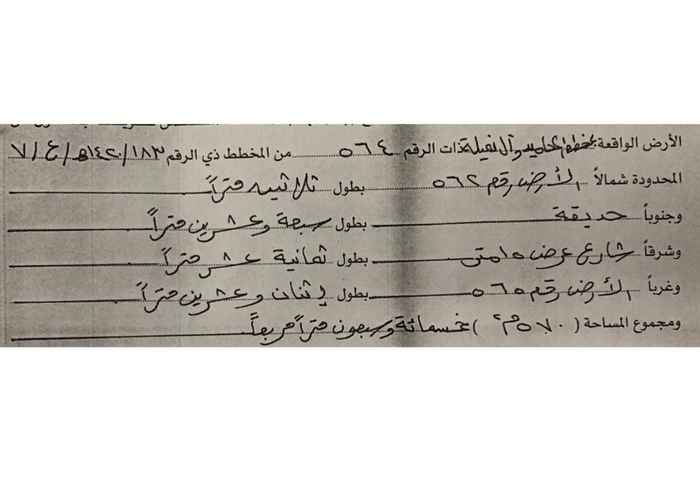 الأرض الواقعة بمخطط الحاميد وآل نفيلة ذات الرقم ٥٦٤ من المخطط ذي الرقم ١٨٣/١٤٢٠هـ/ع/٧
المحدودة شمالاً الأرض رقم ٥٦٢ بطول ثلاثيه متراً
وجنوباً حديقة بطول سبعة وعشرين متراً
وشرقاً شارع عرض ١٥ متر بطول ثمانية عشر متراً
وغرباً الأرض رقم ٥٦٥ بطول إثنان وعشرين متراً
ومجموع المساحة (٥٧٠م٢) خمسمائة وسبعون متراً مربعاً